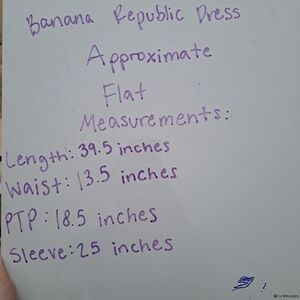 Banana Republic Dress
Approximate
Flat
Measurements:
Length: 39.5 inches
Waist: 13.5 inches
PTP: 18.5 inches
Sleeve: 25 inches